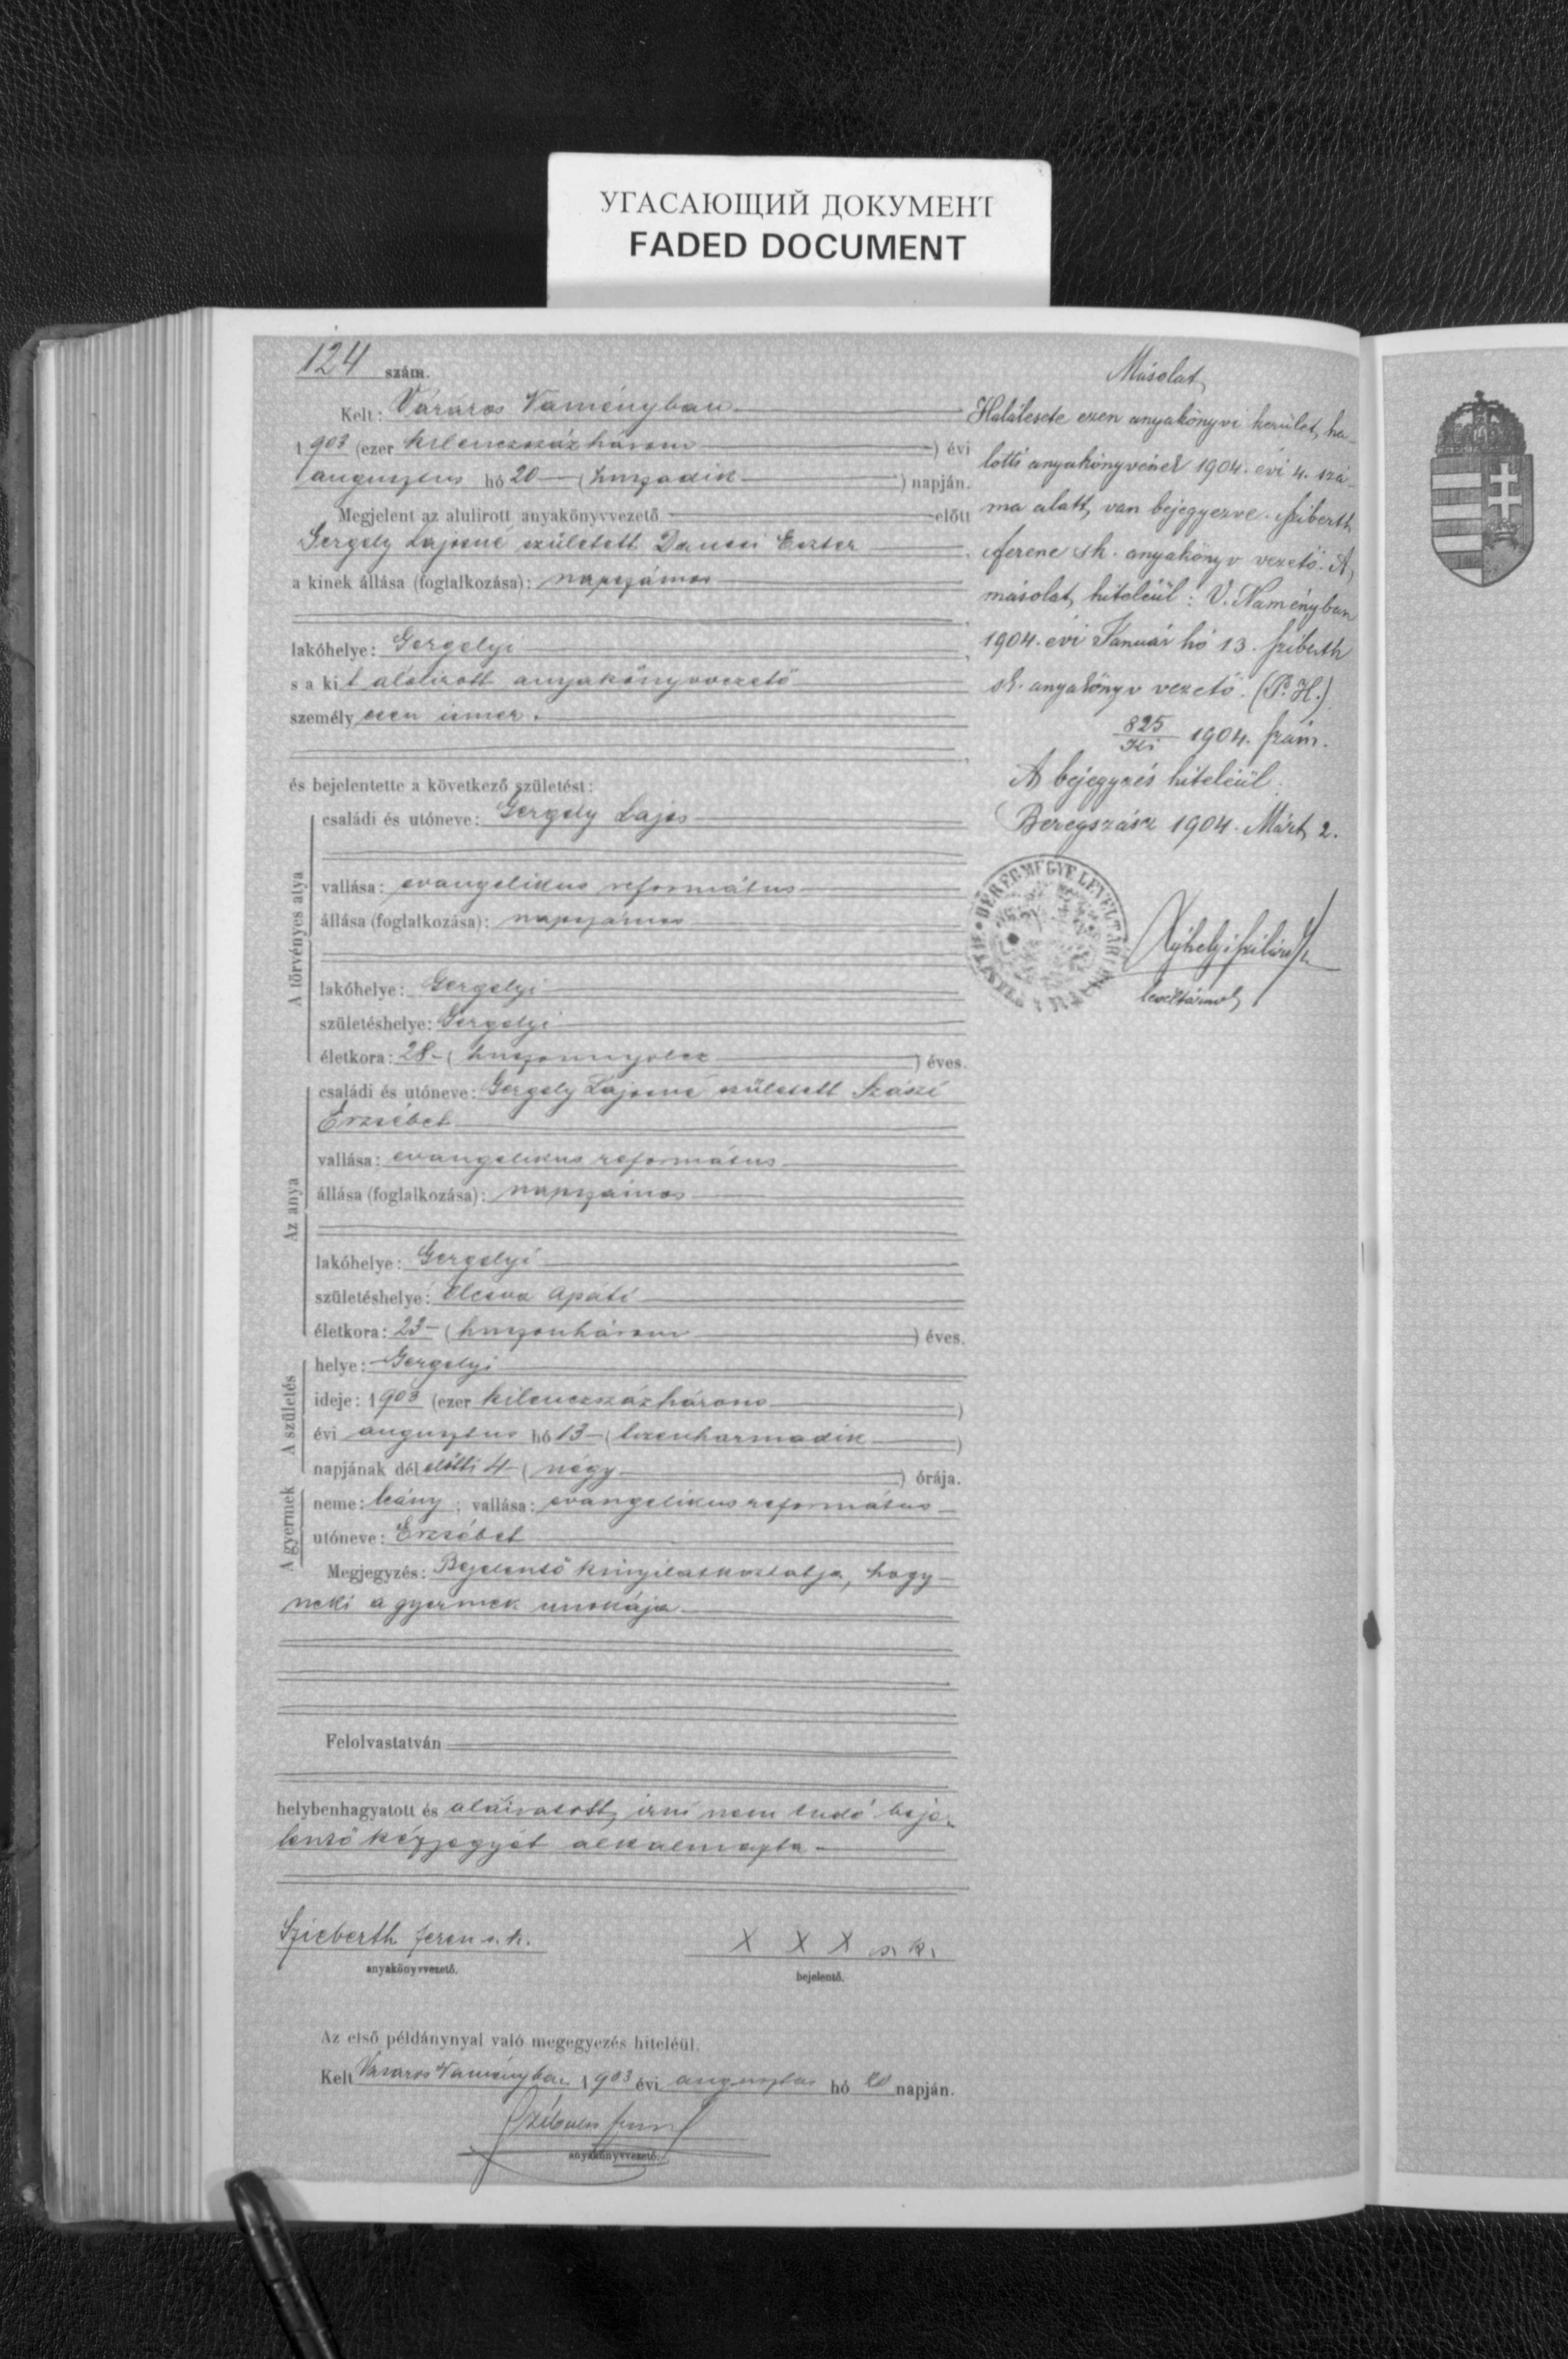 УГАСАЮЩИЙ ДОКУМЕНТ
FADED DOCUMENT
124 szám.
Kelt: Vásáros Naményban
1903 (ezer kilenczszázhárom ) évi
augusztus hó 20 (huszadik ) napján.
Megjelent az alulirott anyakönyvvezető előtt
Gergely Lajosné született Dancsi Eszter
a kinek állása (foglalkozása): napszámos
lakóhelye: Gergelyi
s a kit alólirott anyakönyvvezető
személyesen ismer.
és bejelentette a következő születést:
A törvényes atya
családi és utóneve: Gergely Lajos
vallása: evangelikus református
állása (foglalkozása): napszámos
lakóhelye: Gergelyi
születéshelye: Gergelyi
életkora: 28 (huszonnyolcz ) éves.
Az anya
családi és utóneve: Gergely Lajosné született Szászi
Erzsébet
vallása: evangelikus református
állása (foglalkozása): napszámos
lakóhelye: Gergelyi
születéshelye: Olcsva Apáti
életkora: 23 (huszonhárom ) éves.
A születés
helye: Gergelyi
ideje: 1903 (ezer kilenczszázhárom )
évi augusztus hó 13 (tizenharmadik )
napjának dél előtti 4 (négy ) órája.
A gyermek
neme: leány; vallása: evangelikus református
utóneve: Erzsébet
Megjegyzés: Bejelentő kinyilatkoztatja, hogy
neki a gyermek unokája
Felolvastatván
helybenhagyatott és aláiratott, irni nem tudó beje-
lentő kézjegyét alkalmazta
Szieberth Ferencz s. k.
anyakönyvvezető.
X X X s. k.
bejelentő.
Az első példánynyal való megegyezés hiteléül.
Kelt Vásáros Naményban 1903 évi augusztus hó 20 napján.
anyakönyvvezető.
Másolat
Halálesete ezen anyakönyvi kerület ha-
lotti anyakönyvének 1904. évi 4. szá-
ma alatt, van bejegyezve. Sziberth
Ferenc sk. anyakönyv vezető. A
másolat hiteléül: V. Naményban
1904. évi Január hó 13. Sziberth
sk. anyakönyv vezető. (P. H.)
825/Ki 1904. szám.
A bejegyzés hiteléül.
Beregszász 1904. Márt 2.
BEREGMEGYE LEVÉLTÁRI
levéltárnok